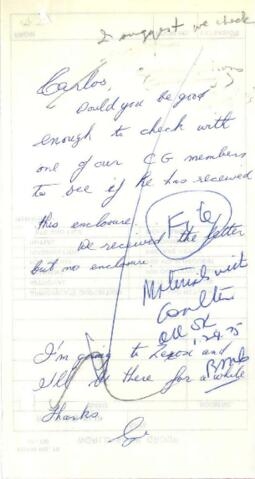 I suggest we check
Carlos,
Would you be good
enough to check with
one of our CG members
to see if he has received
this enclosure.
He received the letter
but no enclosure.
File
Materials with
Coulter
all OK
1.24.75
I'm going to and
I'll be there for a while
Thanks,